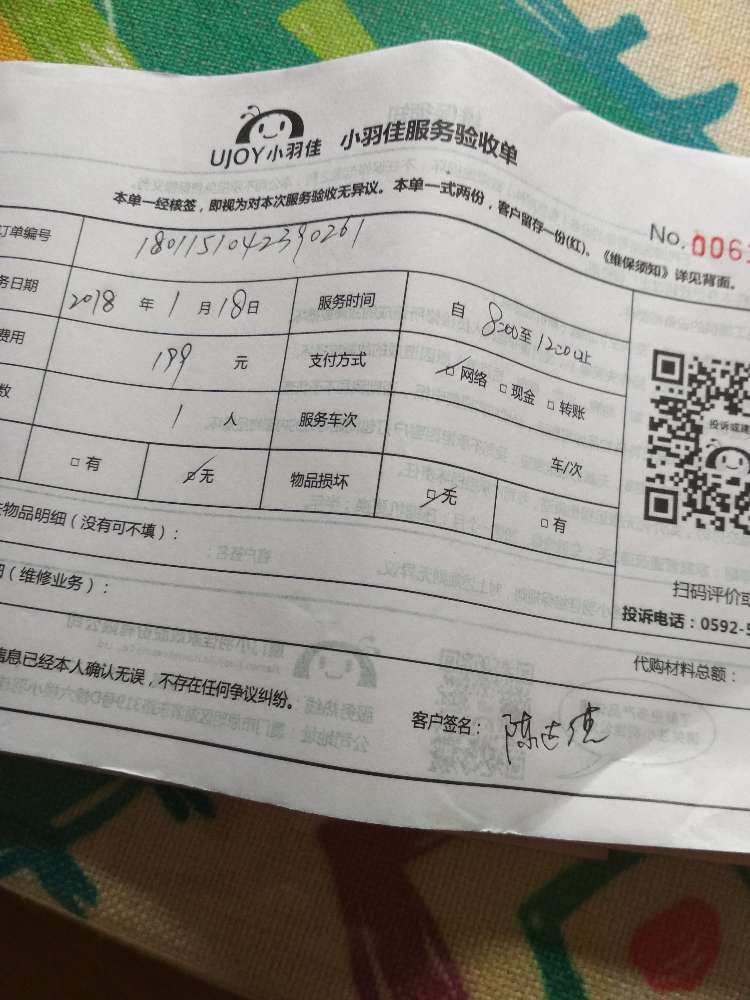 UJOY小羽佳 小羽佳服务验收单
本单一经核签，即视为对本次服务验收无异议。本单一式两份，客户留存一份(红)。《维保须知》详见背面。
No. 006
订单编号 1801151042390261
务日期 2018 年 1 月 18 日 服务时间 自 8:00 至 12:00 止
费用 199 元 支付方式 □网络 □现金 □转账
数 1 人 服务车次 车/次
□有 □无 物品损坏 □无 □有
物品明细（没有可不填）：
（维修业务）：
投诉或建
扫码评价或
投诉电话：0592-5
代购材料总额：
信息已经本人确认无误，不存在任何争议纠纷。
客户签名：陈